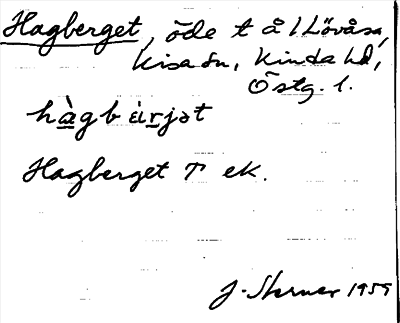 Hagberget, öde t å l Lövåsa,
Kisa sn, Kinda hd,
Östg. l.
hàgb èrjət
Hagberget T ek.
J. Sterner 1959